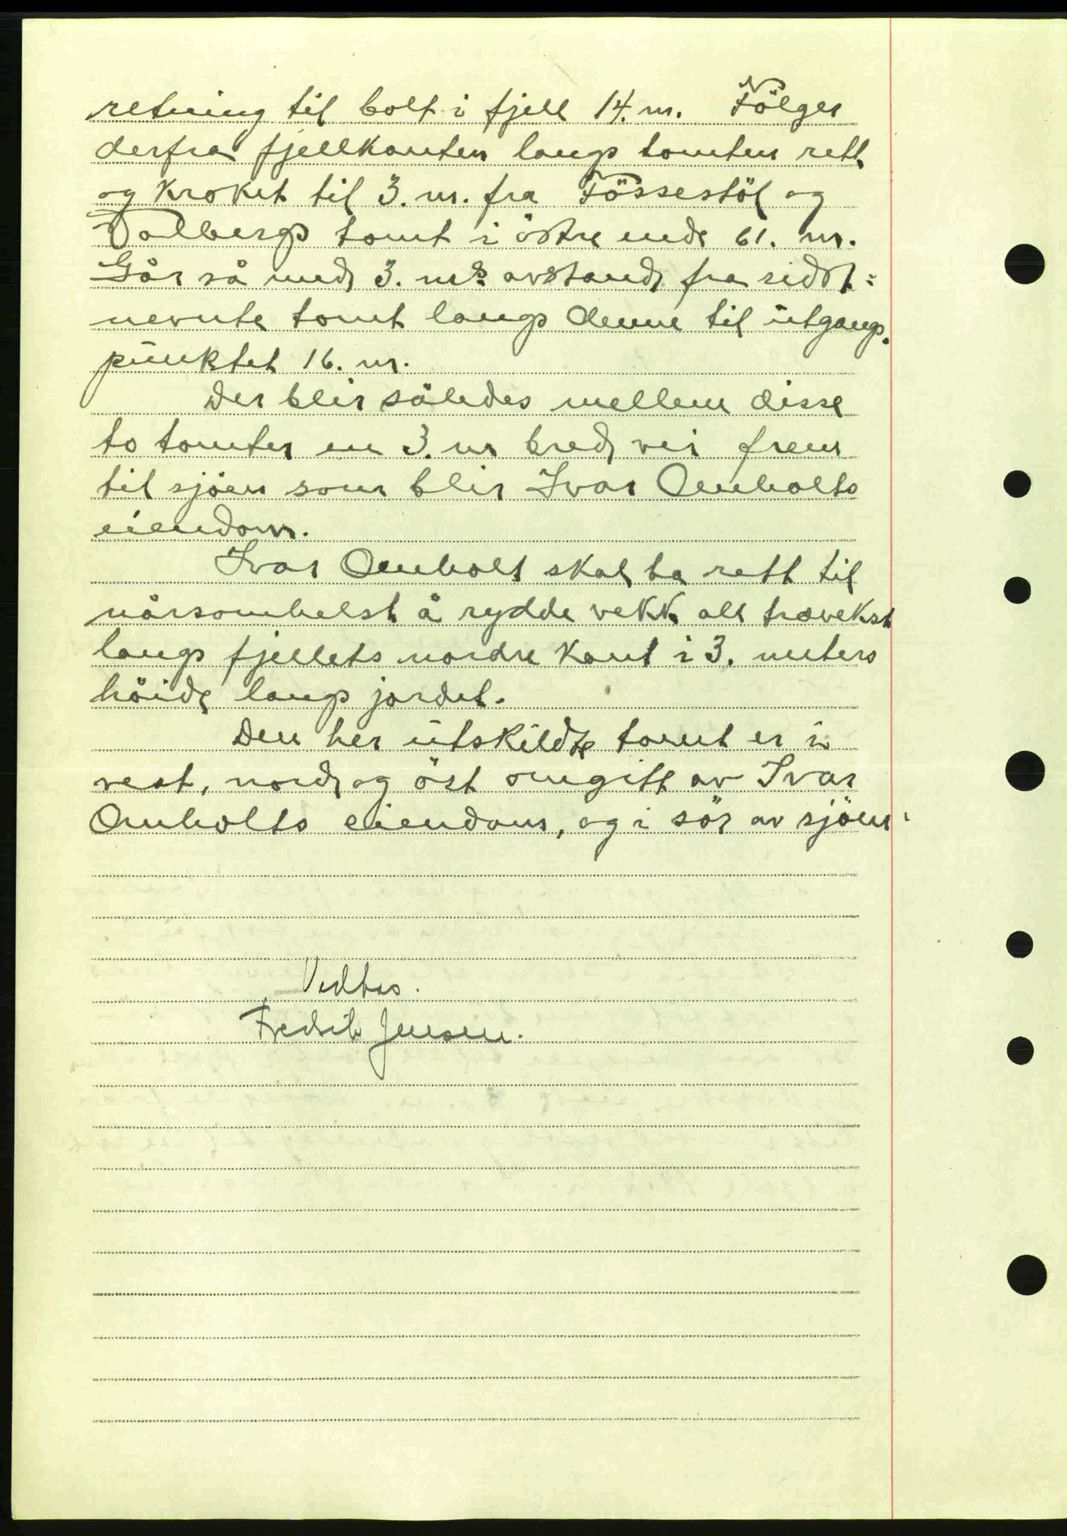 retning til bolt i fjell 14. m. Fölger
derfra fjellkanten langs tomten rett
og kroket til 3. m. fra Fössestöl og
Dalbergs tomt i östre ende 61. m.
Går så med 3. m's avstand fra sidst=
nevnte tomt langs denne til utgangs-
punktet 16. m.
Der blir således mellem disse
to tomter en 3. m bred vei frem
til sjöen som blir Ivar Omholts
eiendom.
Ivar Omholt skal ha rett til
nårsomhelst å rydde vekk all trævekst
langs fjellets nordre kant i 3. meters
höide langs jordet.
Den her utskildte tomt er i
vest, nord og öst omgitt av Ivar
Omholts eiendom, og i sör av sjöen.
Vedtas.
Fredrik Jensen.